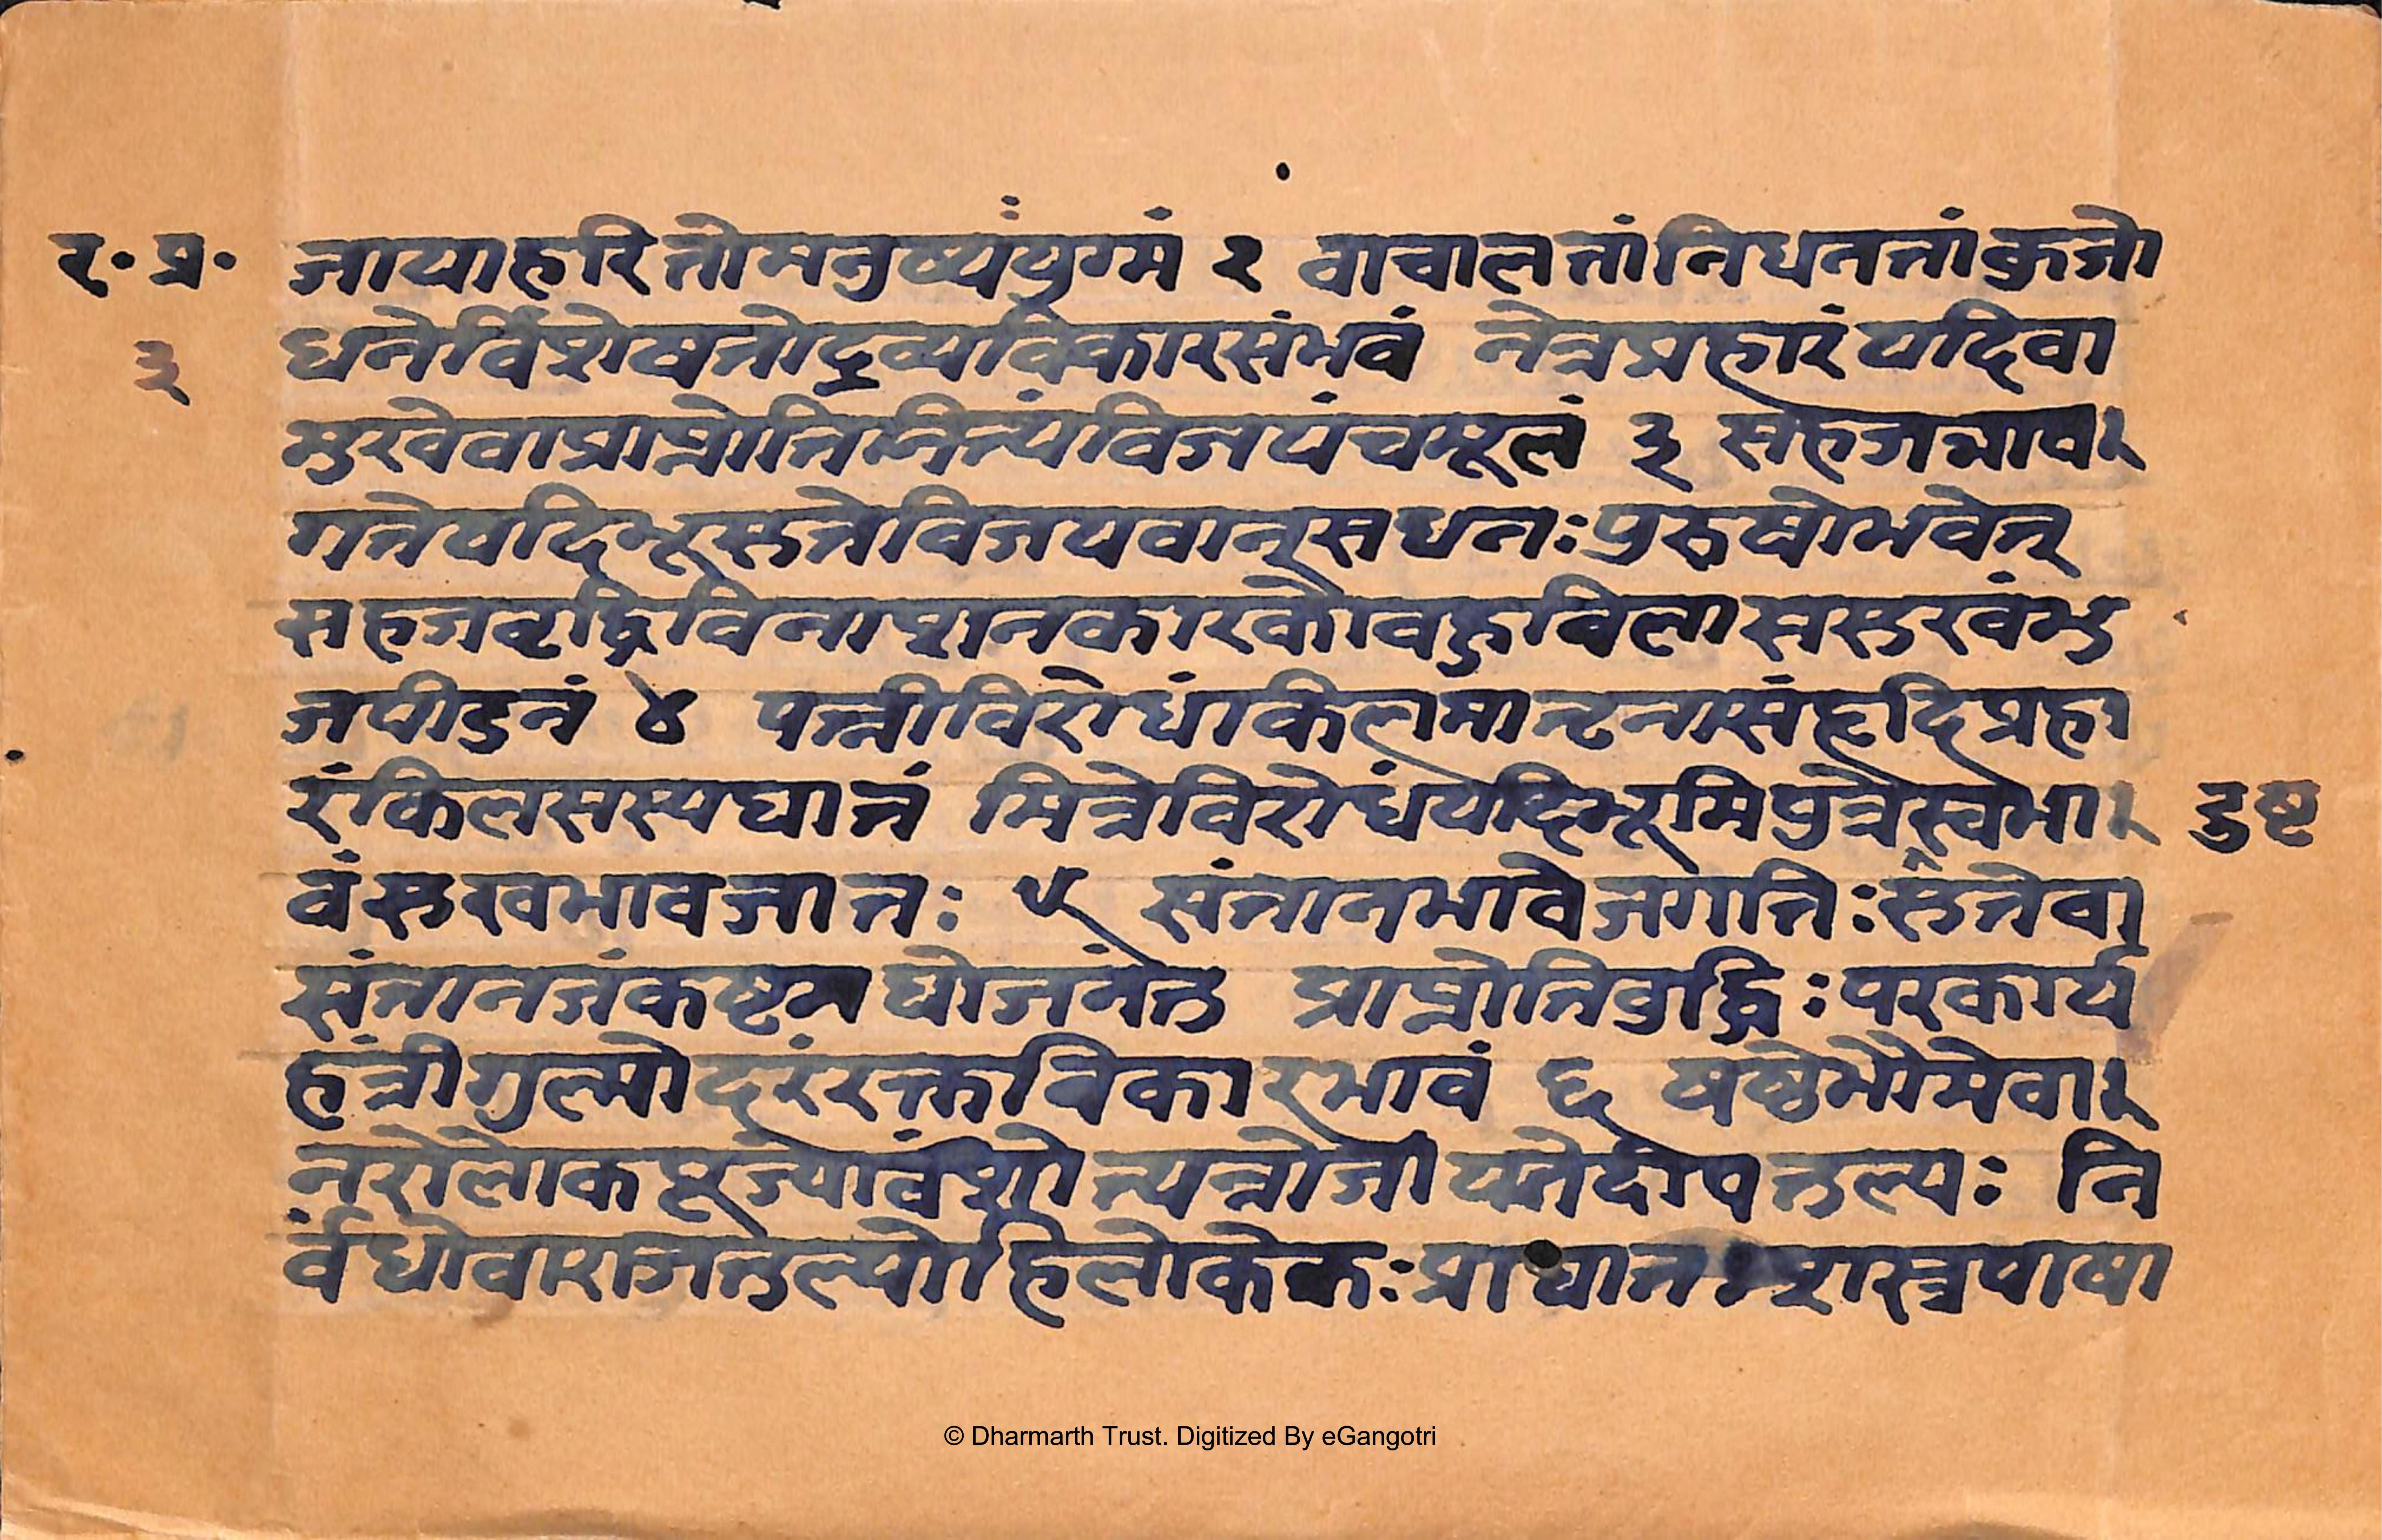 र॰ प्र॰
३
जायाहरितोमनुष्यंयुग्मं २ वाचालतांनिधनतांकुजो
धनेर्विशेषतोद्रव्यविकारसंभवं नेत्रप्रहारंयदिवा
मुखेवाप्राप्नोतिनित्यंविजयंचमूलं ३ सहजभाव
गतेयदिभूसुतेविजयवान्सधनःपुरुषोभवेत्
सहजवृद्धिविनाशनकारकोवहुविलाससुखंभु
जपीडनं ४ पत्नीविरोधंकिलमान्टनासंहृदिप्रहा
रंकिलसस्यघातं मित्रेविरोधंयदिभूमिपुत्रेस्वभा
दुष्ट
वंसुखभावजातः ५ संतानभावेजगतिःसुतेवा
संतानजंकष्टमघोजनंतु प्राप्नोतिवुद्धिःपरकार्य
हंत्रीगुल्मोदरंरक्तविकारभावं ६ षष्ठेभौमेवा
नरोलोकपूज्योवंशोन्यन्नोजीयतेदीपतुल्यः नि
र्वंधोवाराजतुल्योहिलोकेकःप्राघातशस्त्रपाषा
© Dharmarth Trust. Digitized By eGangotri